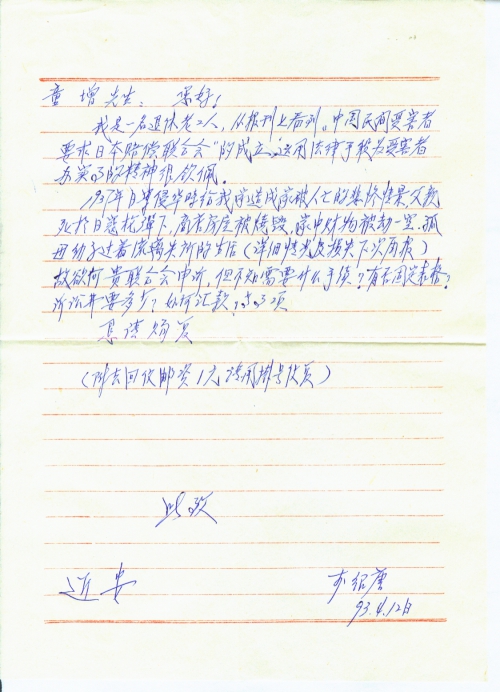 童增先生: 您好!
我是一名退休老工人,从报刊上看到“中国民间受害者
要求日本赔偿联合会”的成立,运用法律手段为受害者
办实事的精神很钦佩。
1937年日军侵华时给我家造成家破人亡的悲惨情景父親
死于日寇枪弹下,房屋房产被烧毁,家中财物被劫一空,孤
母幼子过着流离失所的生活(详细情况及损失下次再报)
故欲向贵联合会申诉,但不知需要什么手续?有否固定表格?
诉讼费要多少?如何汇款?等3项
恳请炳复
(附去回信邮资1元请用掛号信复)
此致
近安
李绍唐
93.4.12日